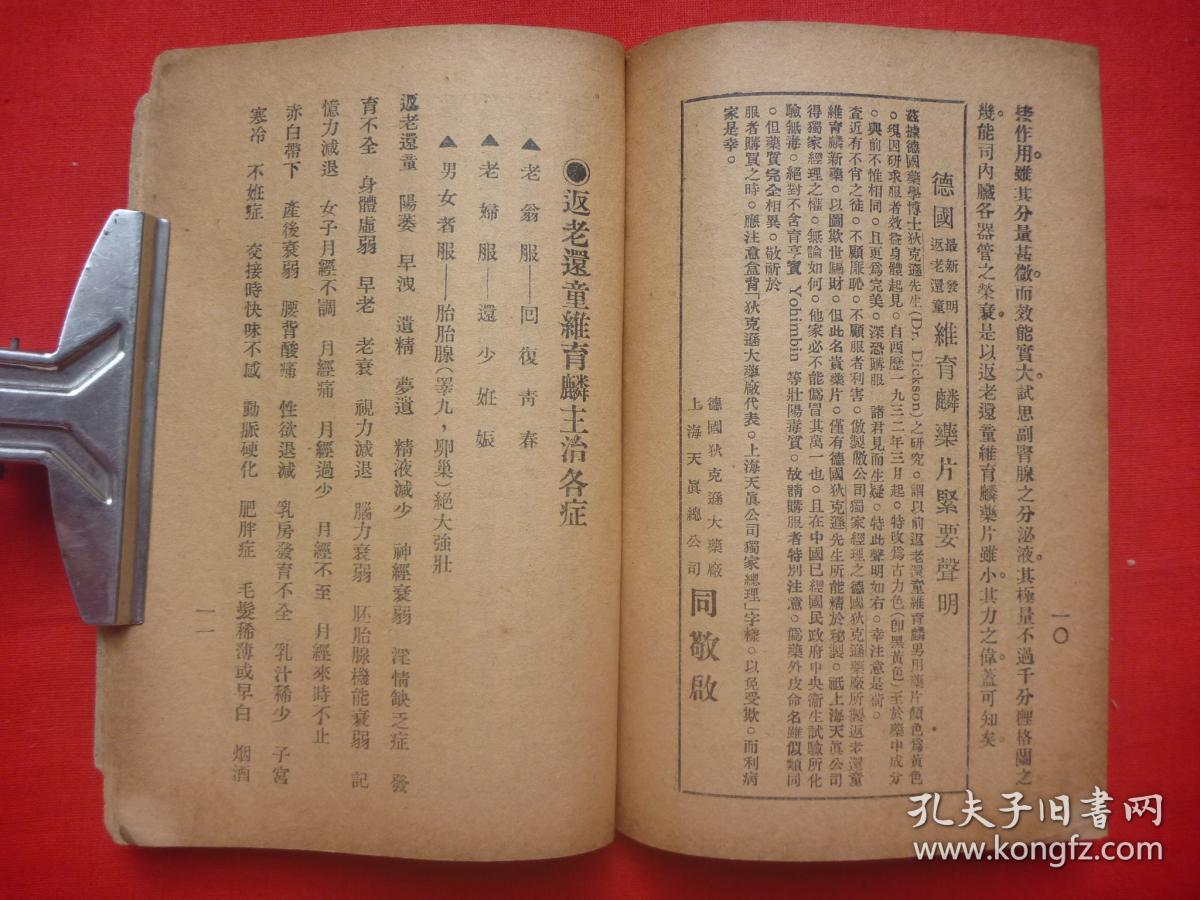 接作用雖其分量甚微而效能實大試思副腎腺之分泌液其極量不過千分糎格蘭之
幾能司內臟各器管之榮衰是以返老還童維育麟藥片雖小其力之偉蓋可知矣
德國最新發明返老還童維育麟藥片緊要聲明
茲據德國藥學博士狄克遜先生(Dr. Dickson)之研究。謂以前返老還童維育麟男用藥片顏色爲黃色
。現因研求服者效益身體起見。自西歷一九三二年三月起。特改爲古力色(即黑黃色)至於藥中成分
。與前不惟相同。且更爲完美。深恐購服 諸君見而生疑。特此聲明如右。幸注意是荷。
查近有不肖之徒。不顧廉恥。不顧服者利害。倣製倣公司獨家經理之德國狄克遜藥廠所製返老還童
維育麟新藥。以圖欺世騙財。但此名貴藥片。僅有德國狄克遜先生所能精於秘製。祗上海天眞公司
得獨家經理之權。無論如何。他家必不能僞冒其萬一也。且在中國已經國民政府中央衞生試驗所化
驗無毒。絕對不含育亨賓 Yobimbin 等壯陽毒質。故請購服者特別注意。僞藥外皮命名雖似類同
。但藥質完全相異。敬祈於
服者購買之時。應注意盒背「狄克遜大藥廠代表。上海天眞公司獨家總理」字樣。以免受欺。而利病
家是幸。
德國狄克遜大藥廠
上海天眞總公司
同敬啟
一〇
返老還童維育麟主治各症
▲老翁服——回復青春
▲老婦服——還少姙娠
▲男女者服——胎胎腺(睪九,卵巢)絕大強壯
返老還童 陽萎 早洩 遺精 夢遺 精液減少 神經衰弱 淫情缺乏症 發
育不全 身體虛弱 早老 老衰 視力減退 腦力衰弱 胚胎腺機能衰弱 記
憶力減退 女子月經不調 月經痛 月經過少 月經不至 月經來時不止
赤白帶下 產後衰弱 腰背酸痛 性欲退減 乳房發育不全 乳汁稀少 子宮
寒冷 不姙症 交接時快味不感 動脈硬化 肥胖症 毛髮稀薄或早白 烟酒
一一
孔夫子旧书网
www.kongfz.com